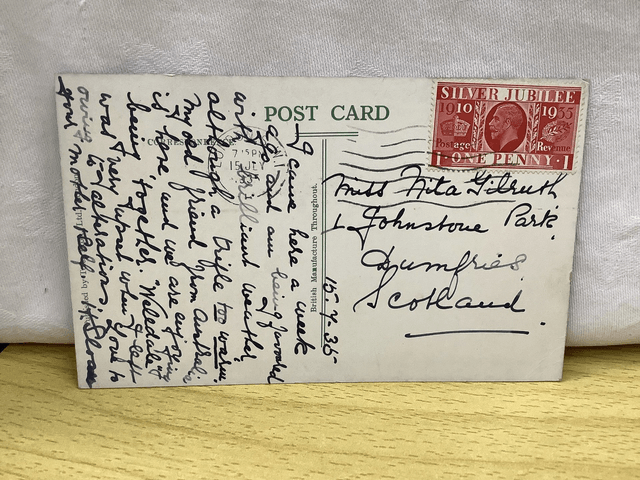 POST CARD
CORRESPONDENCE
SILVER JUBILEE
1910 1935
Postage Revenue
1 ONE PENNY 1
7 15 PM
15 JLY
British Manufacture Throughout.
I came here a week
ago and am being favoured
with brilliant weather
although a trifle too warm.
My old friend from Australia
is here and we are enjoying
being together.
was very upset when I left
owing to alterations. Love to
your mother & self. J. Sloan
15.7.35
Miss Nita Gilruth
1 Johnstone Park.
Dumfries
Scotland.